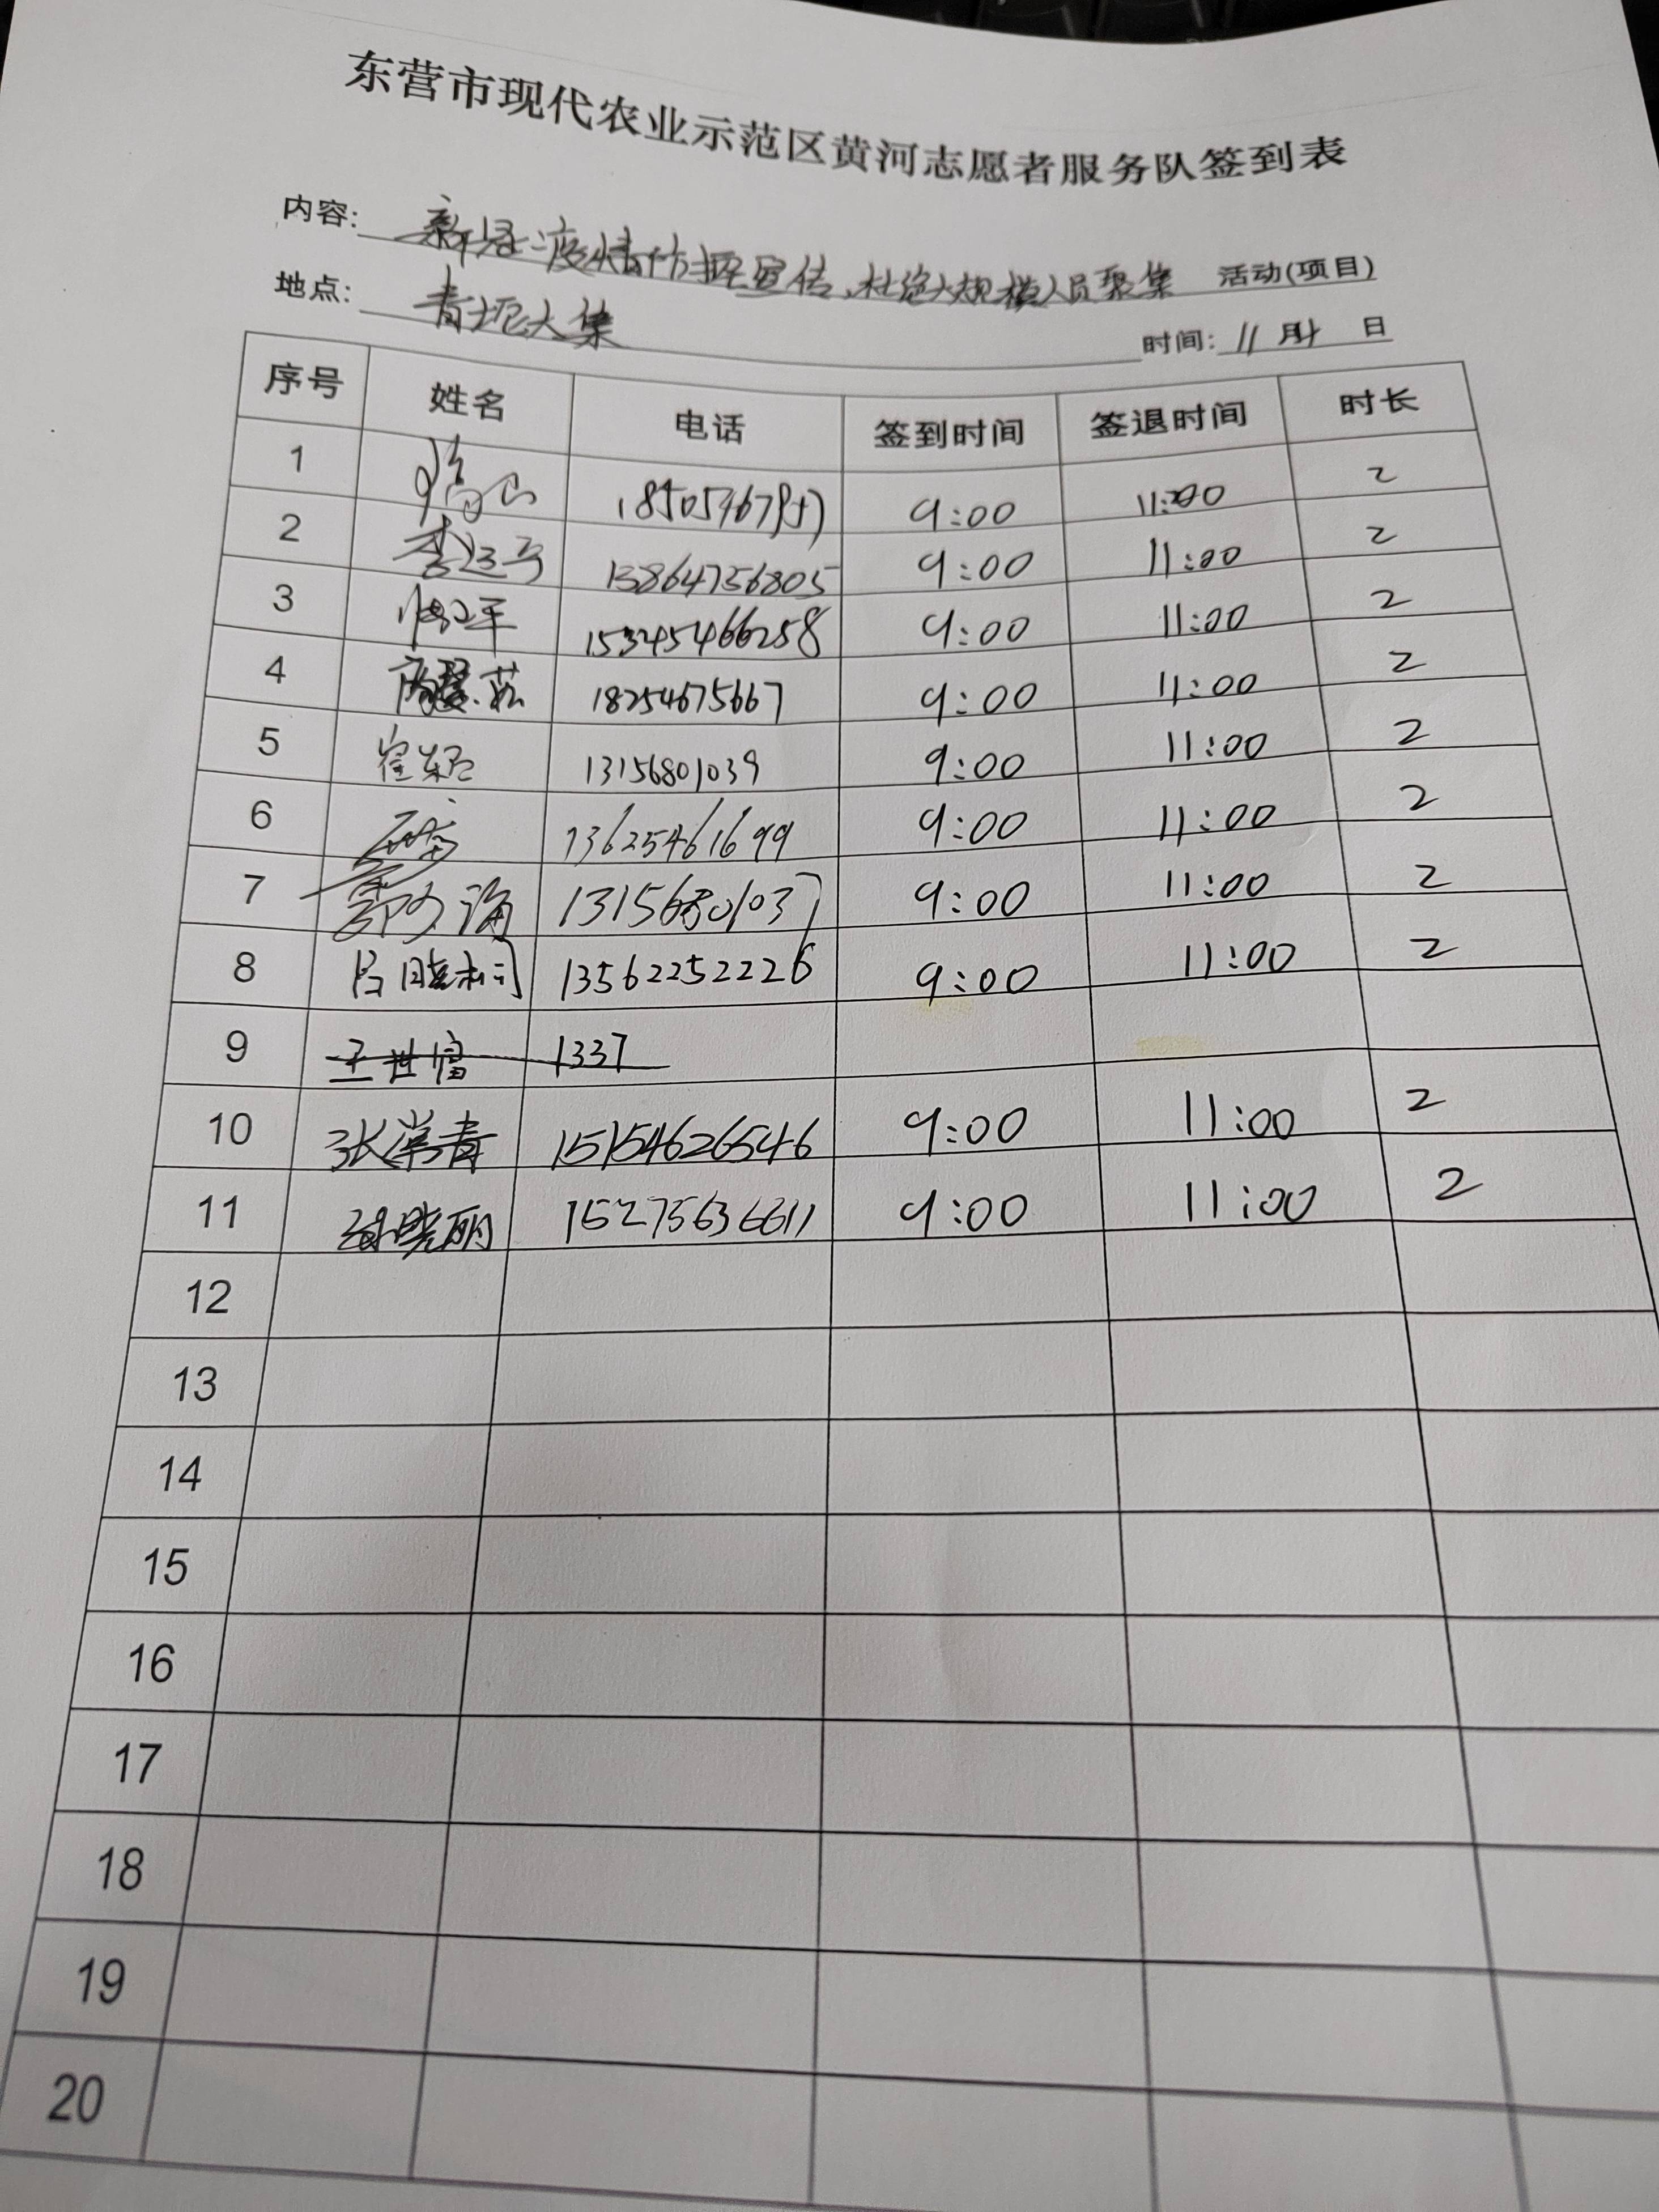 东营市现代农业示范区黄河志愿者服务队签到表
内容: 新冠疫情防控宣传,杜绝大规模人员聚集 活动(项目)
地点: 青坨大集
时间: 11 月 日
序号 姓名 电话 签到时间 签退时间 时长
1 9:00 11:00 2
2 13864756805 9:00 11:00 2
3 15345466258 9:00 11:00 2
4 18254675667 9:00 11:00 2
5 13156801039 9:00 11:00 2
6 13625461699 9:00 11:00 2
7 13156801037 9:00 11:00 2
8 13562252226 9:00 11:00 2
9 王世富 1337
10 张常青 15154626546 9:00 11:00 2
11 晓丽 15275636611 9:00 11:00 2
12
13
14
15
16
17
18
19
20